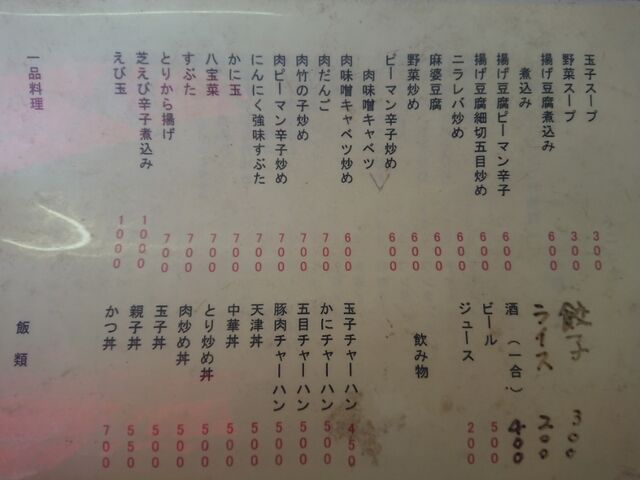 一品料理
えび玉 1000
芝えび辛子煮込み 1000
とりから揚げ 700
すぶた 700
八宝菜 700
かに玉 700
にんにく強味すぶた 700
肉ピーマン辛子炒め 700
肉竹の子炒め 700
肉だんご 700
肉味噌キャベツ炒め 600
肉味噌キャベツ
ピーマン辛子炒め 600
野菜炒め 600
麻婆豆腐 600
ニラレバ炒め 600
揚げ豆腐細切五目炒め 600
揚げ豆腐ピーマン辛子 600
煮込み
揚げ豆腐煮込み 600
野菜スープ 300
玉子スープ 300
飯類
かつ丼 700
親子丼 550
玉子丼 550
肉炒め丼 500
とり炒め丼 500
中華丼 500
天津丼 500
豚肉チャーハン 500
五目チャーハン 500
かにチャーハン 500
玉子チャーハン 450
飲み物
ジュース 200
ビール 500
酒(一合.) 400
ライス 200
餃子 300